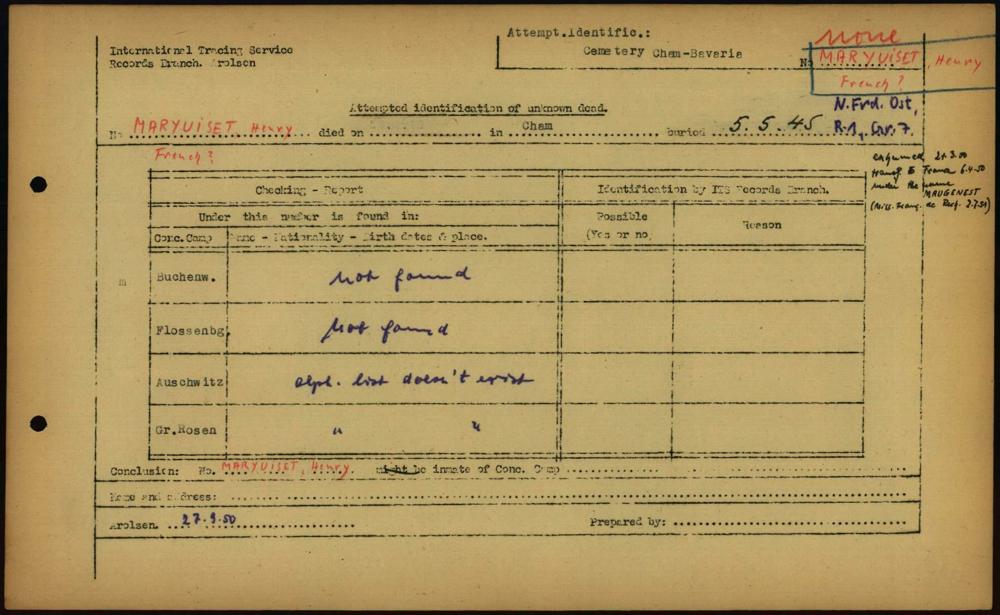 International Tracing Service
Records Branch. Arolsen
Attempt.Identific.:
Cemetery Cham-Bavaria
none
No MARYUISET, Henry
French?
N.Frd. Ost,
R.1, Gr. 7.
Attempted identification of unknown dead.
No MARYUISET Henry died on in Cham buried 5.5.45
French?
exhumed 21.3.50
transf to France 6.4.50
under the name
MAUGENEST
(Miss. Franç. de Rech. 2.7.51)
Checking - Report
Identification by ITS Records Branch.
Under this number is found in:
Possible
(Yes or no)
Reason
Conc.Camp
Name - Nationality - Birth dates & place.
Buchenw. not found
Flossenbg. Not found
Auschwitz alph. list doesn't exist
Gr.Rosen " "
Conclusion: No. MARYUISET, Henry might be inmate of Conc. Camp
Name and address:
Arolsen. 27.9.50
Prepared by: